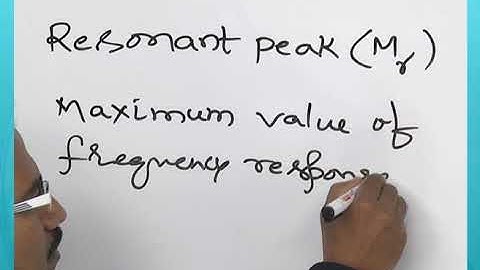 Resonant peak (Mr)
Maximum value of
frequency response